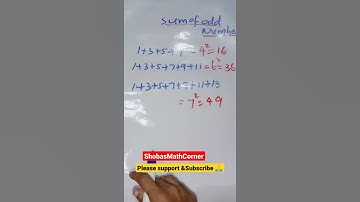 sum of odd
Number
1+3+5+7=4²=16
1+3+5+7+9+11=6²=36
1+3+5+7+9+11+13
=7²=49
ShobasMathCorner
Please support &Subscribe🙏